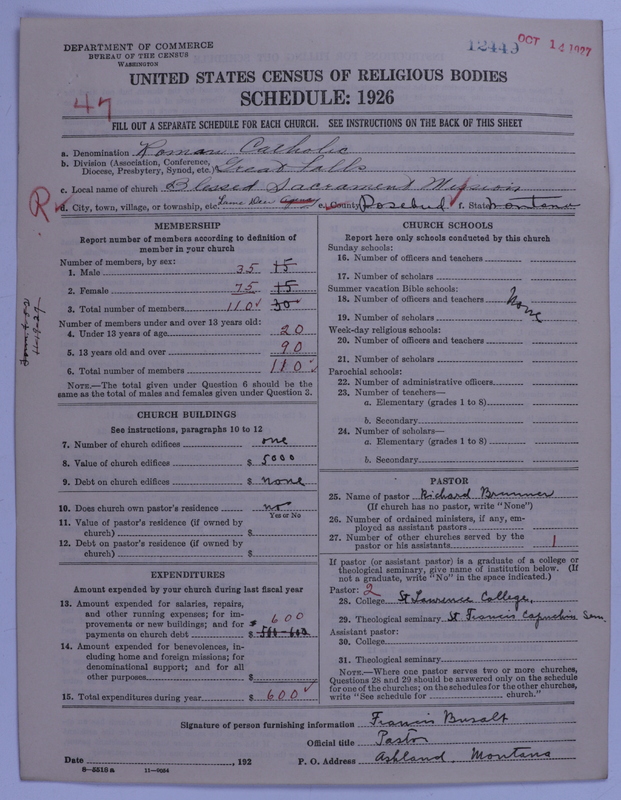 DEPARTMENT OF COMMERCE
BUREAU OF THE CENSUS
WASHINGTON
12449 OCT 14 1927
UNITED STATES CENSUS OF RELIGIOUS BODIES
SCHEDULE: 1926
47
FILL OUT A SEPARATE SCHEDULE FOR EACH CHURCH. SEE INSTRUCTIONS ON THE BACK OF THIS SHEET
a. Denomination Roman Catholic
b. Division (Association, Conference,
Diocese, Presbytery, Synod, etc.) Great Falls
c. Local name of church Blessed Sacrament Mission
R d. City, town, village, or township, etc. Lame Deer e. County Rosebud f. State Montana
MEMBERSHIP
Report number of members according to definition of
member in your church
Number of members, by sex:
1. Male 35 15
2. Female 75 15
3. Total number of members 110 30
Number of members under and over 13 years old:
4. Under 13 years of age 20
5. 13 years old and over 90
6. Total number of members 110
NOTE.—The total given under Question 6 should be the
same as the total of males and females given under Question 3.
CHURCH BUILDINGS
See instructions, paragraphs 10 to 12
7. Number of church edifices one
8. Value of church edifices $ 5000
9. Debt on church edifices $ none
10. Does church own pastor's residence no
Yes or No
11. Value of pastor's residence (if owned by
church) $
12. Debt on pastor's residence (if owned by
church) $
EXPENDITURES
Amount expended by your church during last fiscal year
13. Amount expended for salaries, repairs,
and other running expenses; for im-
provements or new buildings; and for $ 600
payments on church debt $ 500-600
14. Amount expended for benevolences, in-
cluding home and foreign missions; for
denominational support; and for all
other purposes $
15. Total expenditures during year $ 600
CHURCH SCHOOLS
Report here only schools conducted by this church
Sunday schools:
16. Number of officers and teachers
17. Number of scholars
Summer vacation Bible schools:
18. Number of officers and teachers None
19. Number of scholars
Week-day religious schools:
20. Number of officers and teachers
21. Number of scholars
Parochial schools:
22. Number of administrative officers
23. Number of teachers—
a. Elementary (grades 1 to 8)
b. Secondary
24. Number of scholars—
a. Elementary (grades 1 to 8)
b. Secondary
PASTOR
25. Name of pastor Richard Brunner
(If church has no pastor, write "None")
26. Number of ordained ministers, if any, em-
ployed as assistant pastors
27. Number of other churches served by the
pastor or his assistants 1
If pastor (or assistant pastor) is a graduate of a college or
theological seminary, give name of institution below. (If
not a graduate, write "No" in the space indicated.)
Pastor: 2
28. College St Lawrence College,
29. Theological seminary St Francis Capuchin Sem.
Assistant pastor:
30. College
31. Theological seminary
NOTE.—Where one pastor serves two or more churches,
Questions 28 and 29 should be answered only on the schedule
for one of the churches; on the schedules for the other churches,
write "See schedule for church."
Signature of person furnishing information Francis Busalt
Official title Pastor
Date , 192 P. O. Address Ashland, Montana
8—5518a 11—9034